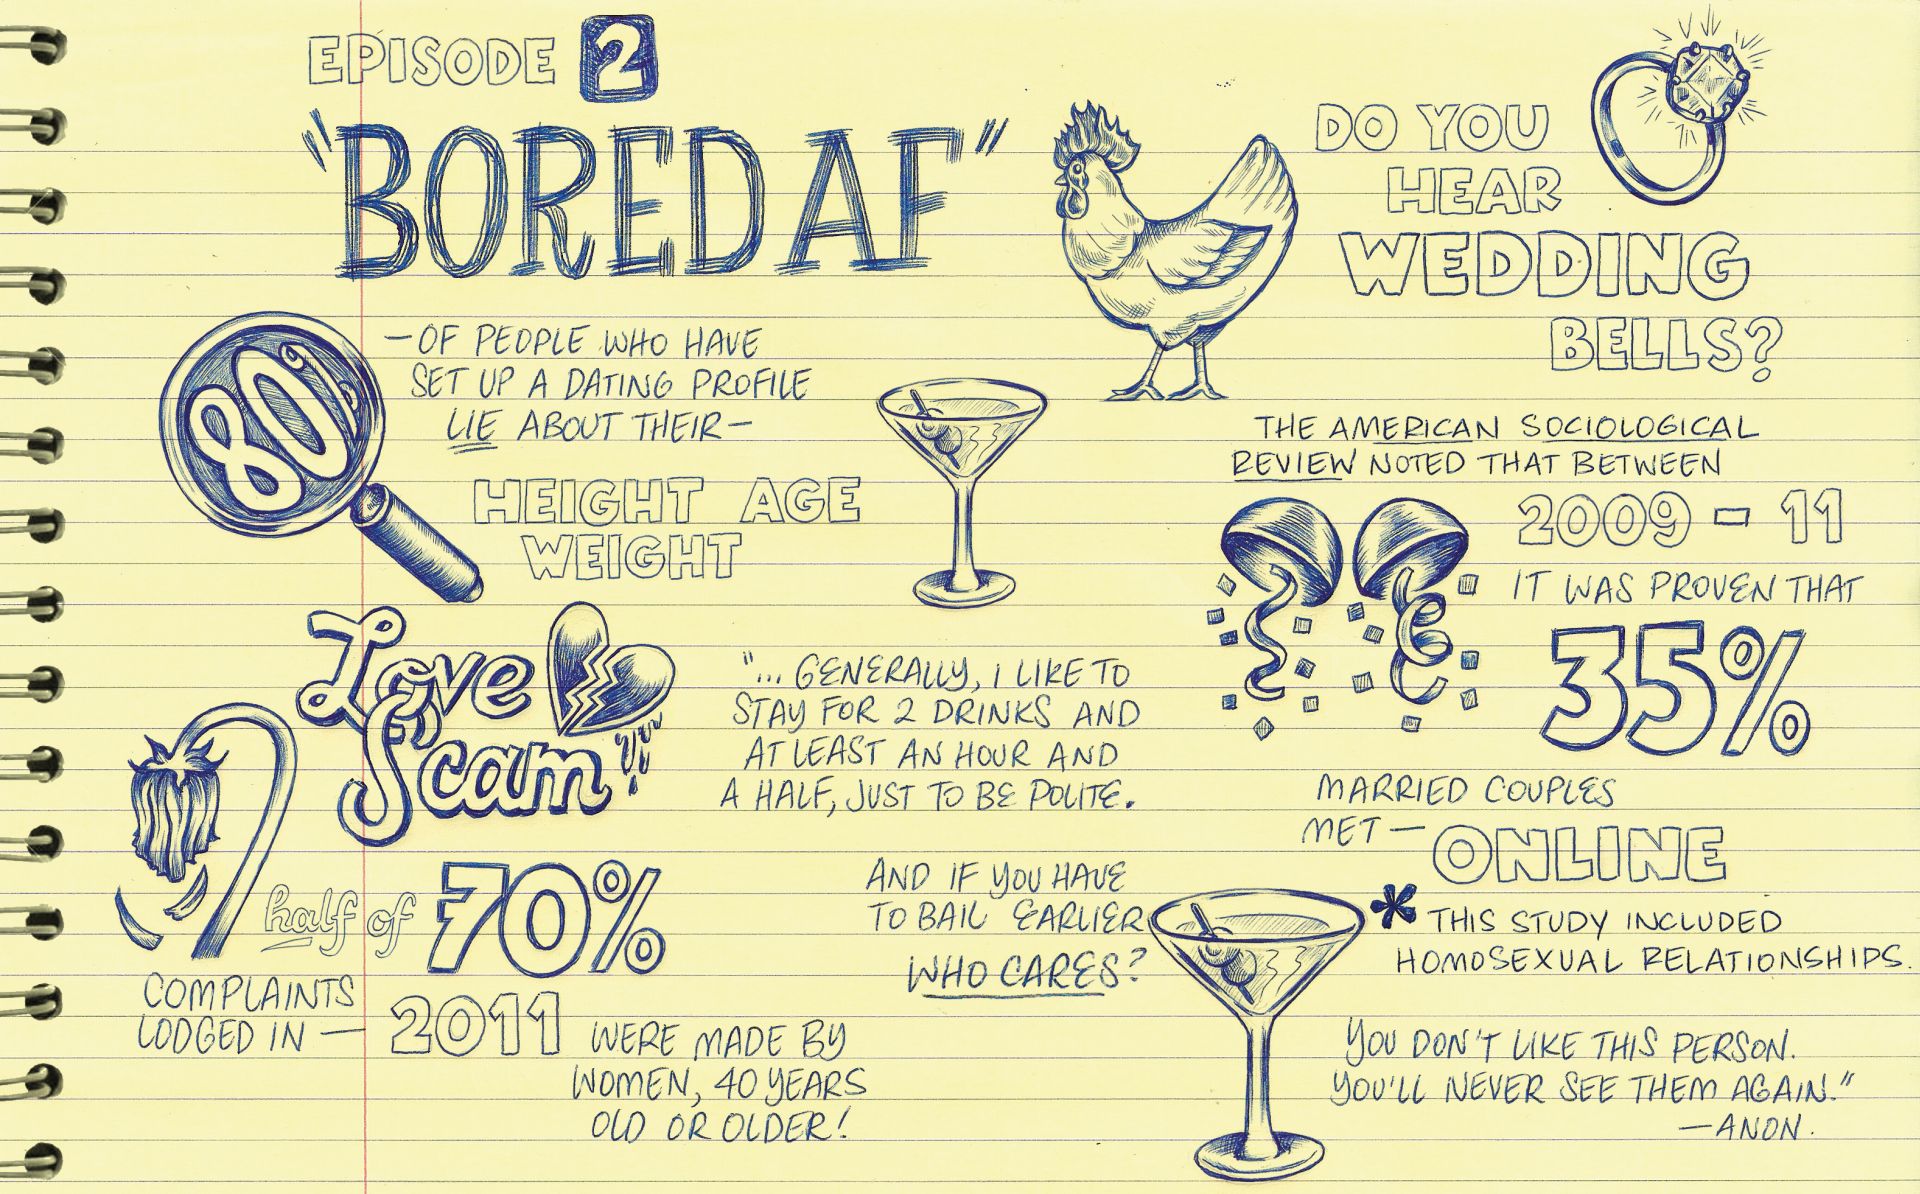 EPISODE 2
"BORED AF"
80%
—OF PEOPLE WHO HAVE
SET UP A DATING PROFILE
LIE ABOUT THEIR—
HEIGHT AGE
WEIGHT
Love
Scam
half of 70%
COMPLAINTS
LODGED IN — 2011 WERE MADE BY
WOMEN, 40 YEARS
OLD OR OLDER!
DO YOU
HEAR
WEDDING
BELLS?
THE AMERICAN SOCIOLOGICAL
REVIEW NOTED THAT BETWEEN
2009 - 11
IT WAS PROVEN THAT
35%
MARRIED COUPLES
MET — ONLINE
* THIS STUDY INCLUDED
HOMOSEXUAL RELATIONSHIPS.
"... GENERALLY, I LIKE TO
STAY FOR 2 DRINKS AND
AT LEAST AN HOUR AND
A HALF, JUST TO BE POLITE.
AND IF YOU HAVE
TO BAIL EARLIER
WHO CARES?
YOU DON'T LIKE THIS PERSON.
YOU'LL NEVER SEE THEM AGAIN."
—ANON.